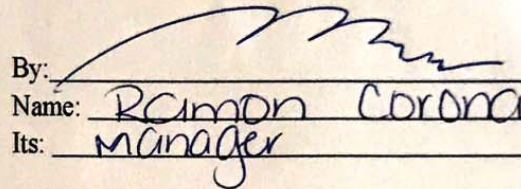 By:
Name: Ramon Corona
Its: Manager